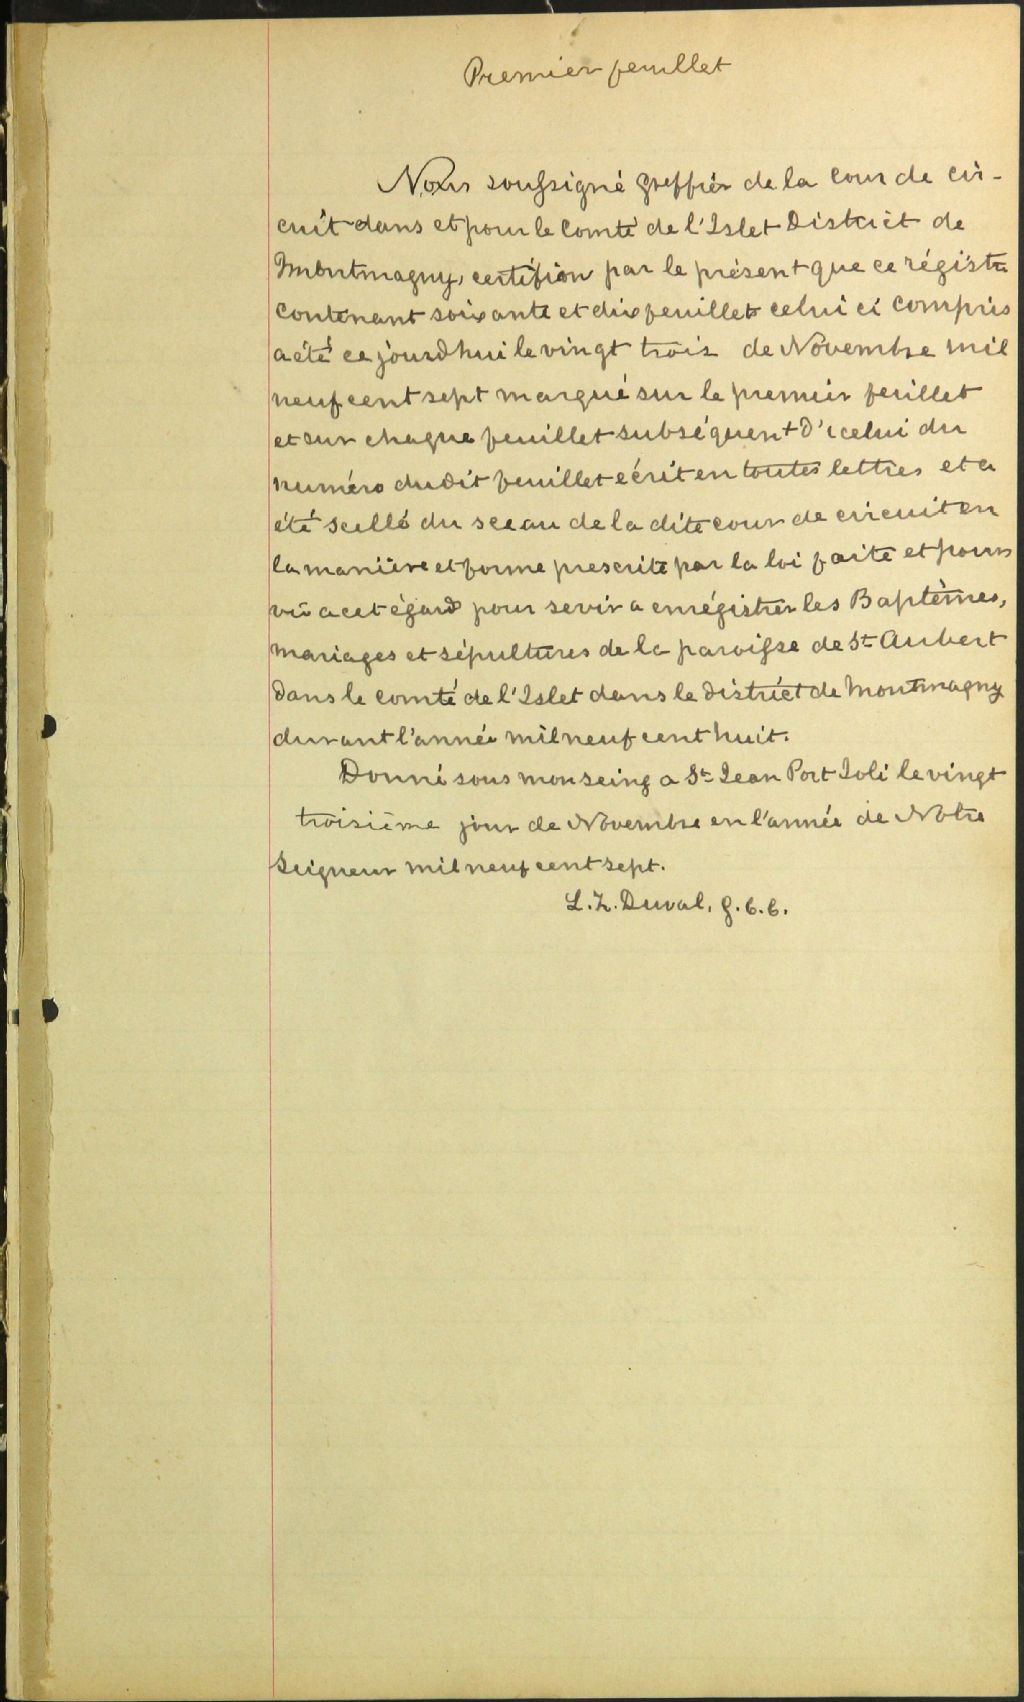 Premier feuillet
Nous soussigné greffier de la Cour de cir-
cuit dans et pour le Comté de l'Islet District de
Montmagny, certifion par le présent que ce régistre
contenant soixante et dix feuillets celui ci compris
a été ce jourd'hui le vingt trois de Novembre mil
neuf cent sept marqué sur le premier feuillet
et sur chaque feuillet subséquent d'icelui du
numéro dudit feuillet écrit en toutes lettres et a
été scellé du sceau de la dite cour de circuit en
la manière et forme prescrite par la loi faite et pour
vû a cet égard pour servir a enrégistrer les Baptêmes,
mariages et sépultures de la paroisse de St Aubert
dans le comté de l'Islet dans le district de Montmagny
durant l'année mil neuf cent huit.
Donné sous mon seing a St Jean Port Joli le vingt
troisième jour de Novembre en l'année de Notre
Seigneur mil neuf cent sept.
L. Z. Duval, g.c.c.